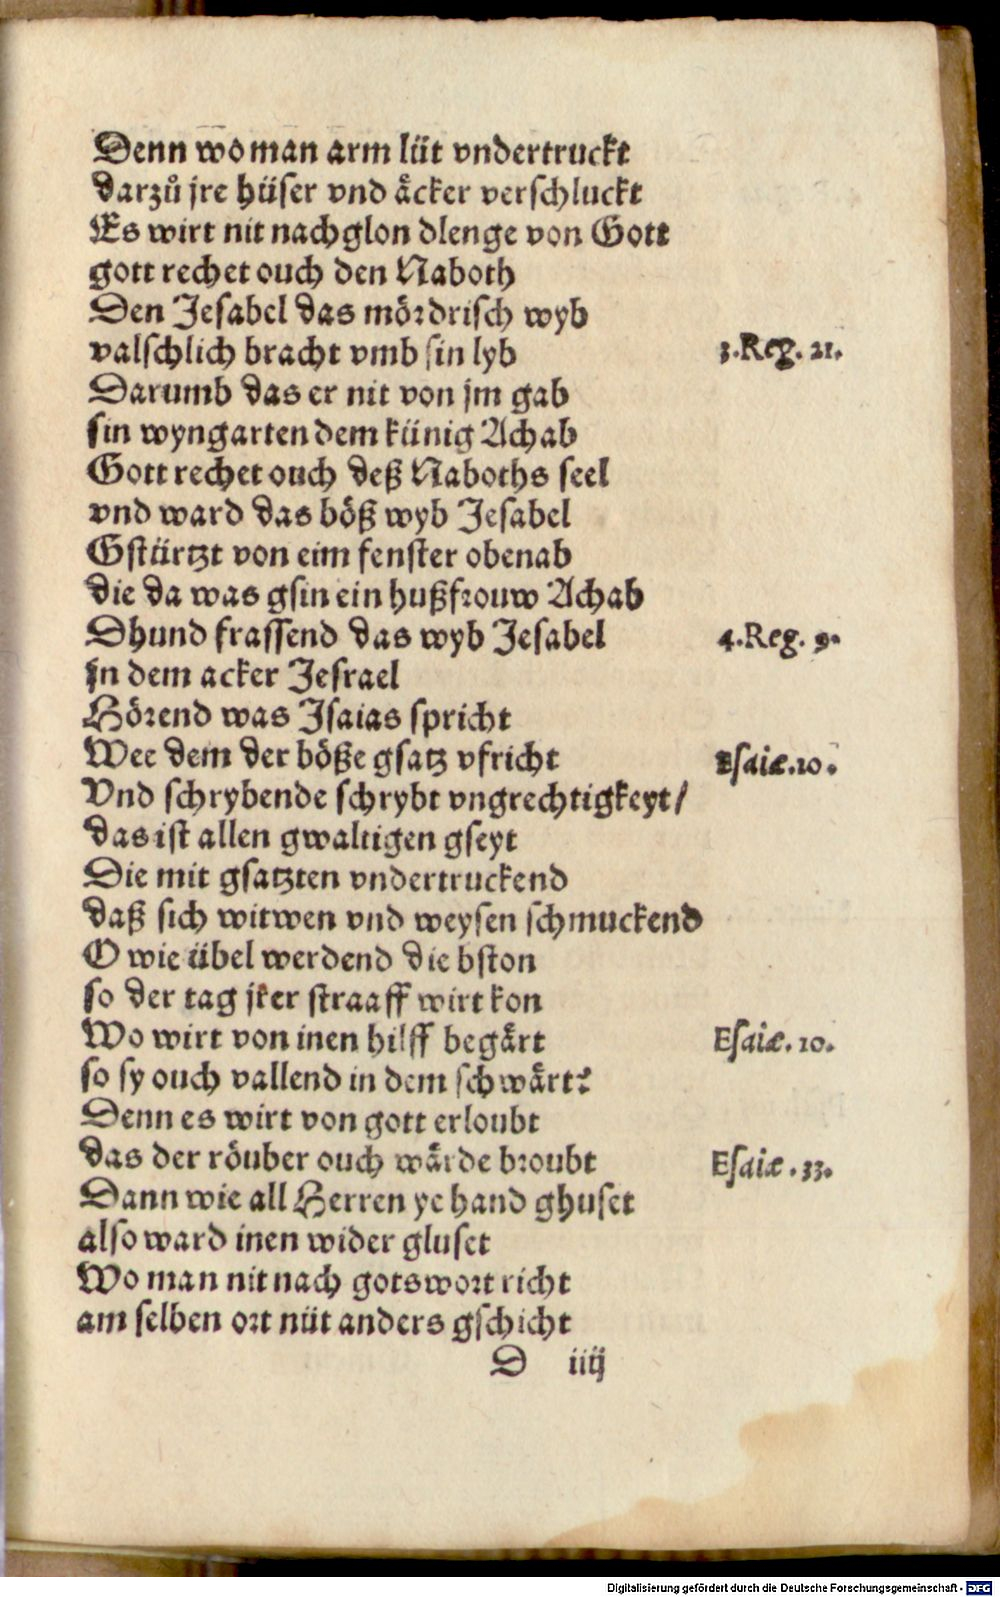 Denn wo man arm lüt vndertruckt
darzů jre hüser vnd äcker verschluckt
Es wirt nit nachglon dlenge von Gott
gott rechet ouch den Naboth
Den Jesabel das mördrisch wyb
valschlich bracht vmb sin lyb 3.Reg. 21.
Darumb das er nit von jm gab
sin wyngarten dem künig Achab
Gott rechet ouch deß Naboths seel
vnd ward das böß wyb Jesabel
Gstürtzt von eim fenster obenab
die da was gsin ein hußfrouw Achab
Dhund frassend das wyb Jesabel 4.Reg. 9.
jn dem acker Jesrael
Hörend was Jsaias spricht
Wee dem der böße gsatz vfricht Esaiæ.10.
Vnd schrybende schrybt vngrechtigkeyt/
das ist allen gwaltigen gseyt
Die mit gsatzten vndertruckend
daß sich witwen vnd weysen schmuckend
O wie übel werdend die bston
so der tag jrer straaff wirt kon
Wo wirt von inen hilff begärt Esaiæ. 10.
so sy ouch vallend in dem schwärt?
Denn es wirt von gott erloubt
das der röuber ouch wärde broubt Esaiæ .33.
Dann wie all Herren ye hand ghuset
also ward inen wider gluset
Wo man nit nach gotswort richt
am selben ort nüt anders gschicht
D iiij
Digitalisierung gefördert durch die Deutsche Forschungsgemeinschaft - DFG